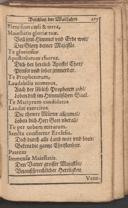 Beschluß der Wallfahrt 415
Pleni sunt cœli & terra,
Majestatis gloriæ tuæ.
Voll seynd Himmel und Erde weit/
Der Glory deiner Majestät.
Te gloriosus
Apostolorum chorus,
Dich der herzlich Apostel Chor/
Preiset und lobet immerdar.
Te Prophetarum,
Laudabilis numerus,
Auch der löblich Propheten zahl/
Loben dich im Himmlischen Saal.
Te Martyrum candidatus
Laudat exercitus.
Die theure Märter allzumal/
Loben dich Herr Gott
Te per orbem terrarum,
Sancta confitetur Ecclesia.
Dich durch alle Land weit und breit/
Bekennt die gantze Christenheit.
Patrem
Immensæ Majestatis.
Den Vatter grosser Majestät/
Herrlichkeit